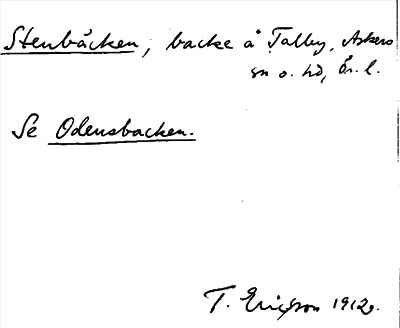 Stenbäcken, backe å Talby, Askers
sn o. hd, Ör. l.
Se Odensbacken.
T. Ericsson 1912.